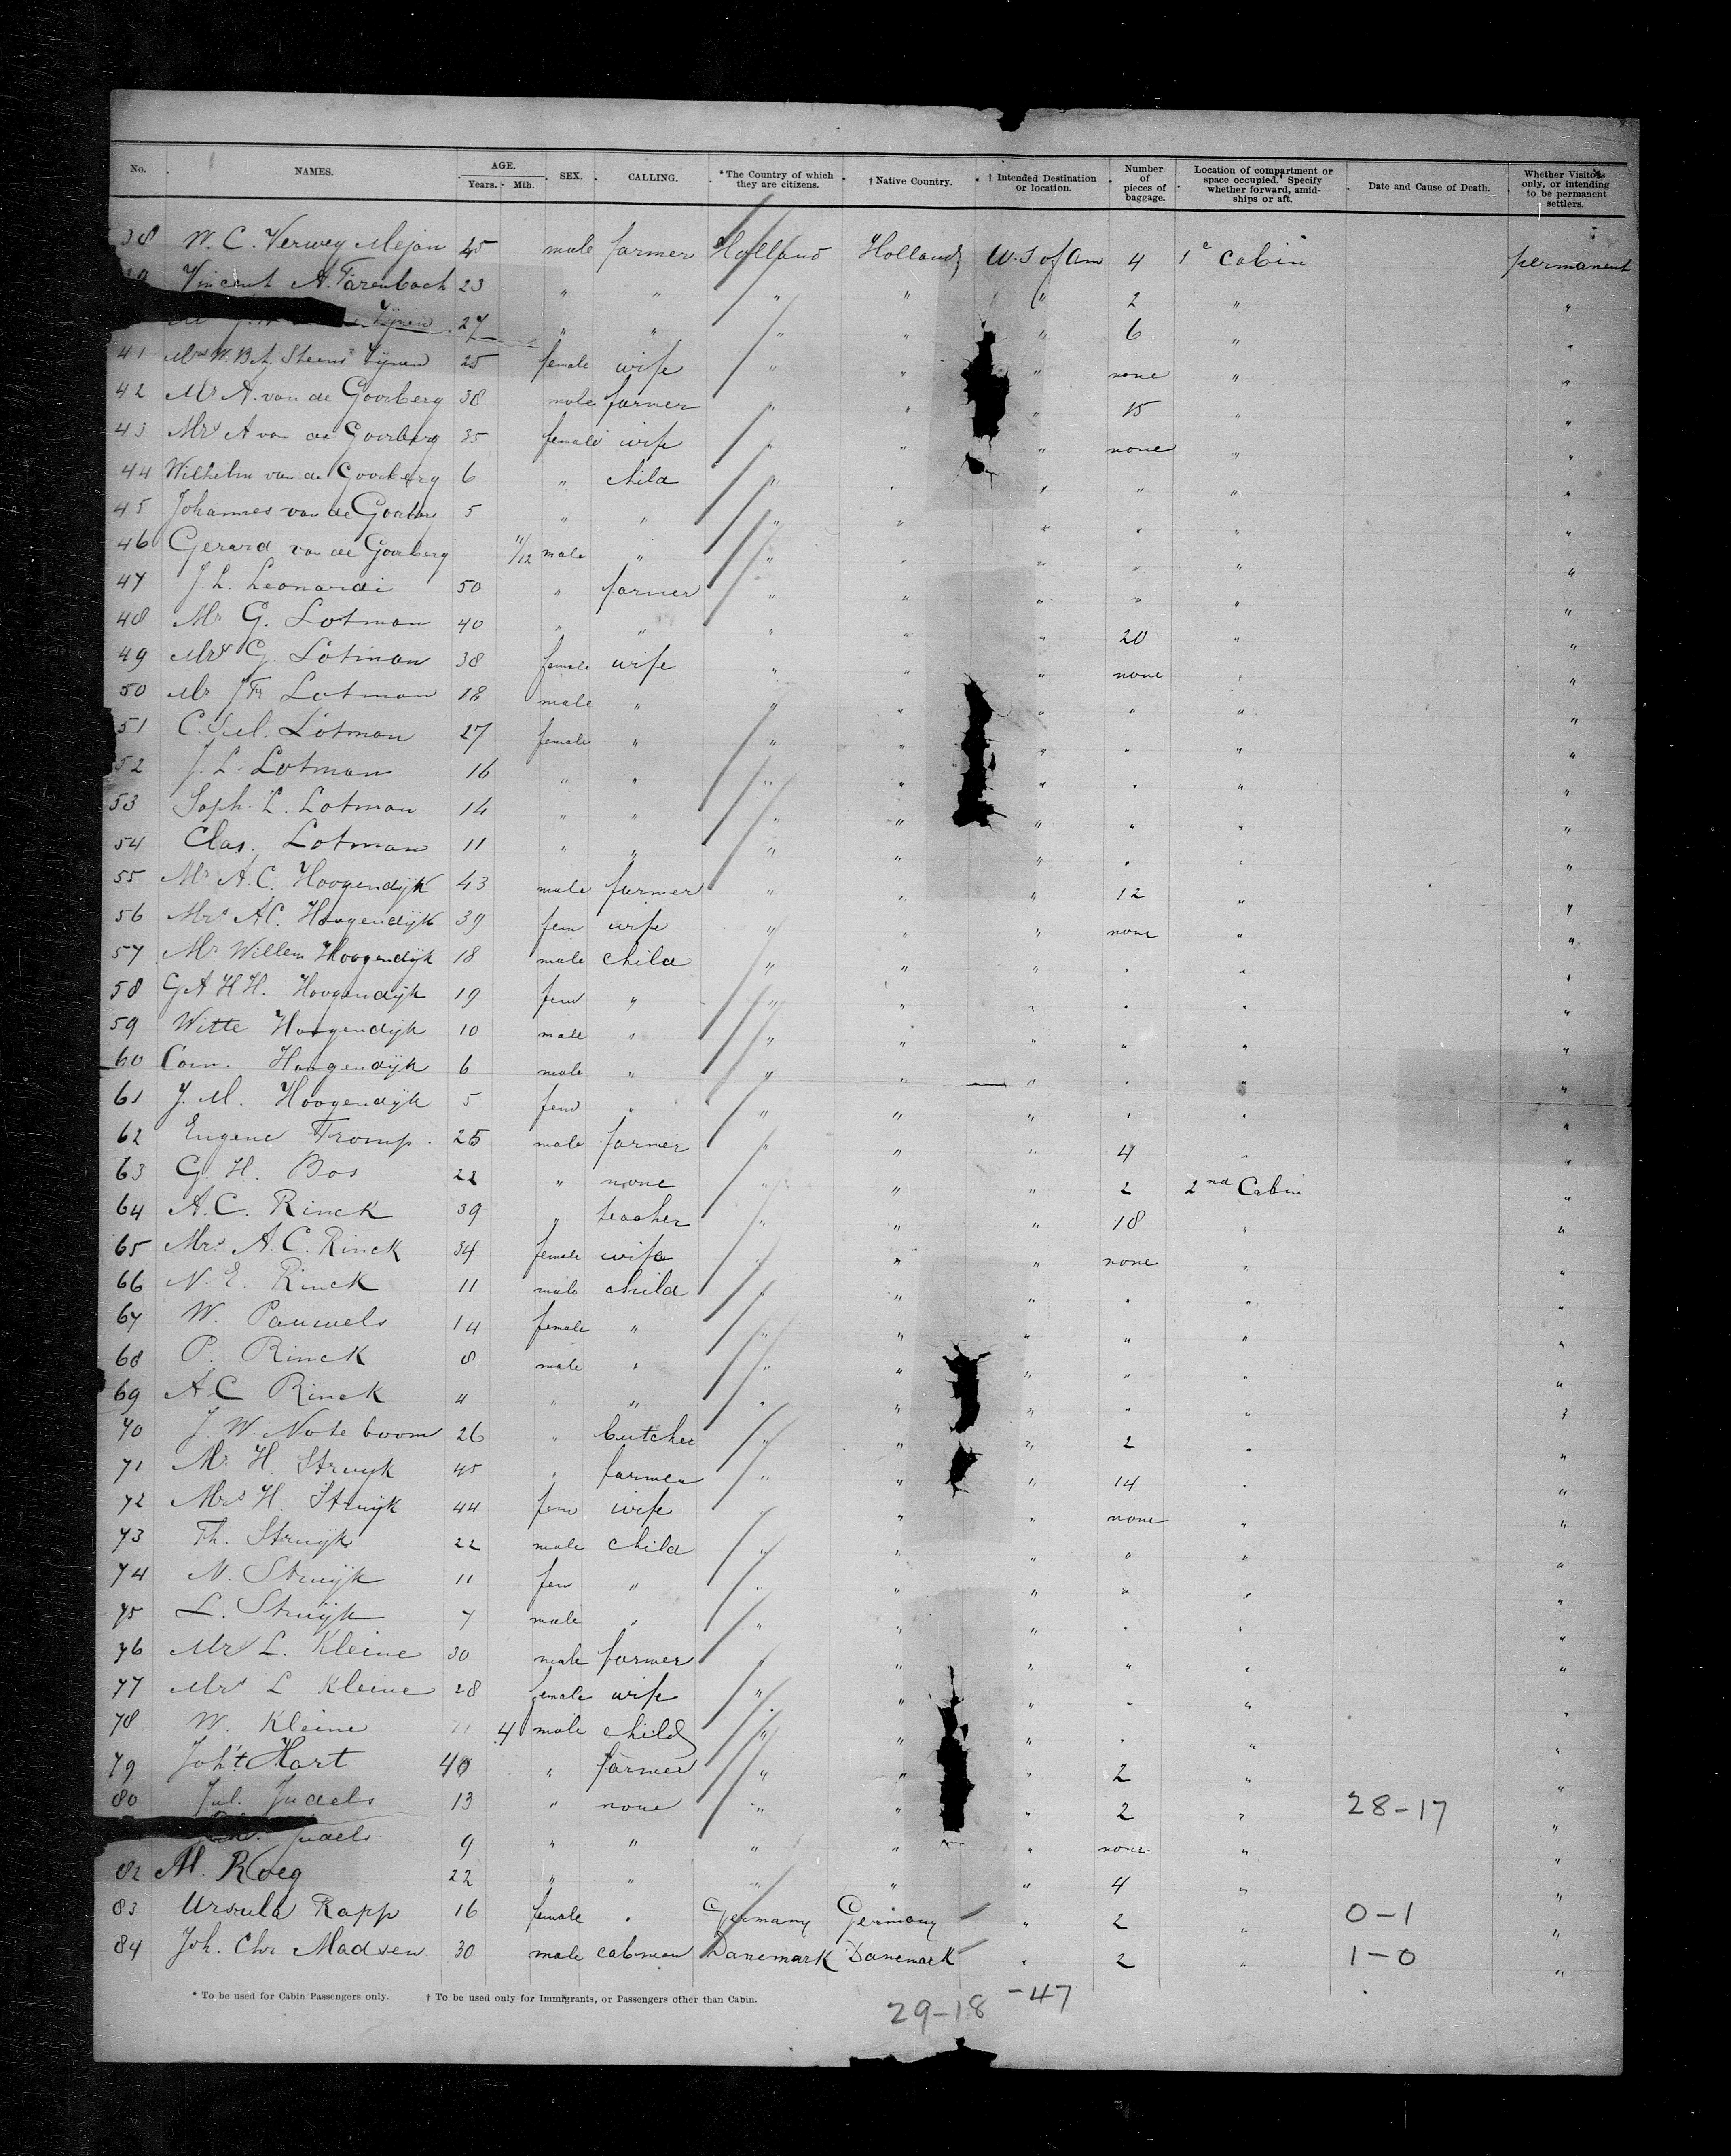 No. NAMES. AGE. Years. Mth. SEX. CALLING. *The Country of which they are citizens. †Native Country. †Intended Destination or location. Number of pieces of baggage. Location of compartment or space occupied. Specify whether forward, amidships or aft. Date and Cause of Death. Whether Visitors only, or intending to be permanent settlers.
38 W. C. Verwey Mejan 45 male farmer Holland Holland U. S of Am 4 1e Cabin permanent
39 Vincent A. Farenbach 23 " " " " " 2 " "
Tijnen 27 " " " " " 6 " "
41 Mrs W. B. A. Steens Tijnen 25 female wife " " " none " "
42 Mr A. van de Goorberg 38 male farmer " " " 15 " "
43 Mrs A van de Goorberg 35 female wife " " " none " "
44 Wilhelm van de Goorberg 6 " child " " " " " "
45 Johannes van de Goorberg 5 " " " " " " " "
46 Gerard van de Goorberg 11/12 male " " " " " " "
47 J. L. Leonardi 50 " farmer " " " " " "
48 Mr G. Lotman 40 " " " " " 20 " "
49 Mrs G. Lotman 38 female wife " " " none " "
50 Mr J Fr Lotman 18 male " " " " " " "
51 C. Lotman 27 female " " " " " " "
52 J. L. Lotman 16 " " " " " " " "
53 Soph. L. Lotman 14 " " " " " " " "
54 Clas. Lotman 11 " " " " " " " "
55 Mr A. C. Hoogendijk 43 male farmer " " " 12 " "
56 Mrs A C. Hoogendijk 39 fem wife " " " none " "
57 Mr Willem Hoogendijk 18 male child " " " " " "
58 G A H H. Hoogendijk 19 fem " " " " " " "
59 Witte Hoogendijk 10 male " " " " " " "
60 Corn. Hoogendijk 6 male " " " " " " "
61 J. M. Hoogendijk 5 fem " " " " " " "
62 Eugene Tromp. 25 male farmer " " " 4 " "
63 G. H. Bos 22 " none " " " 2 2nd Cabin "
64 A. C. Rinck 39 " teacher " " " 18 " "
65 Mrs A. C. Rinck 34 female wife " " " none " "
66 N. E. Rinck 11 male child " " " " " "
67 W. Pauwels 14 female " " " " " " "
68 P. Rinck 8 male " " " " " " "
69 A. C Rinck " " " " " " " "
70 J. W. Noteboom 26 " butcher " " " 2 " "
71 Mr H. Struyk 45 " farmer " " " 14 " "
72 Mrs H. Struijk 44 fem wife " " " none " "
73 Th. Struijk 22 male child " " " " " "
74 N. Struijk 11 fem " " " " " " "
75 L. Struijk 7 male " " " " " " "
76 Mr L. Kleine 30 male farmer " " " " " "
77 Mrs L Kleine 28 female wife " " " " " "
78 W. Kleine 4 male child " " " " " "
79 Joh 't Hart 40 " farmer " " " 2 " "
80 Jul. Judels 13 " none " " " 2 " 28-17 "
Judels 9 " " " " " none " "
82 M. Roeg 22 " " " " " 4 " "
83 Ursula Rapp 16 female " Germany Germany " 2 " 0-1 "
84 Joh. Chr Madsen 30 male cabman Danemark Danemark " 2 " 1-0 "
* To be used for Cabin Passengers only. † To be used only for Immigrants, or Passengers other than Cabin.
29-18 -47